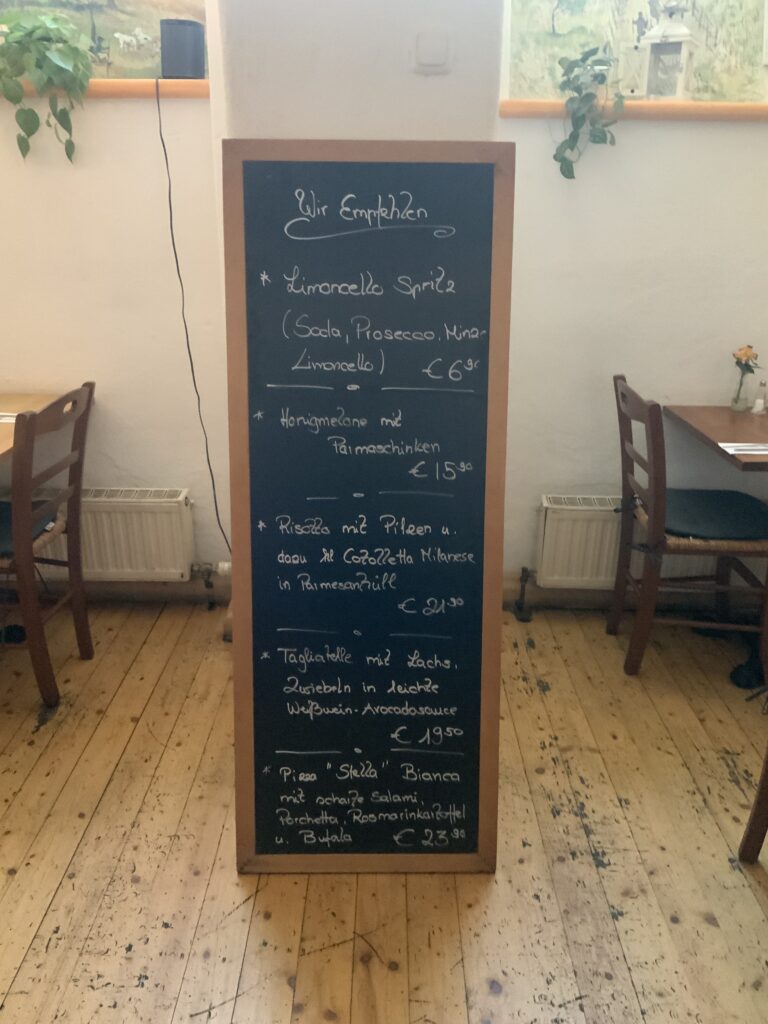 Wir Empfehlen
* Limoncello Spritz
(Soda, Prosecco, Minze
Limoncello) € 6,90
* Honigmelone mit
Parmaschinken
€ 15,90
* Risotto mit Pilzen u.
dazu kl Cotolletta Milanese
in Parmesanhüll
€ 21,90
* Tagliatelle mit Lachs,
Zwiebeln in leichte
Weißwein-Avocadosauce
€ 19,50
* Pizza "Stella" Bianca
mit scharfe Salami,
Porchetta, Rosmarinkartoffel
u. Bufala € 23,90